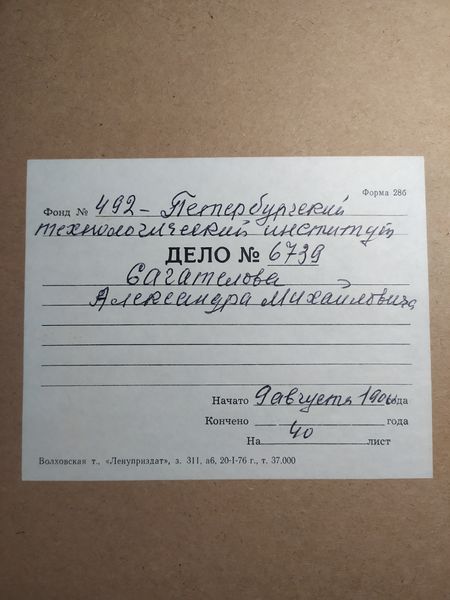 Форма 286
Фонд № 492 - Петербургский
технологический институт
ДЕЛО № 6739
Сагателова
Александра Михайловича
Начато 9 августа года
Кончено года
На 40 лист
Волховская т., «Ленуприздат», з. 311, а6, 20-I-76 г., т. 37.000